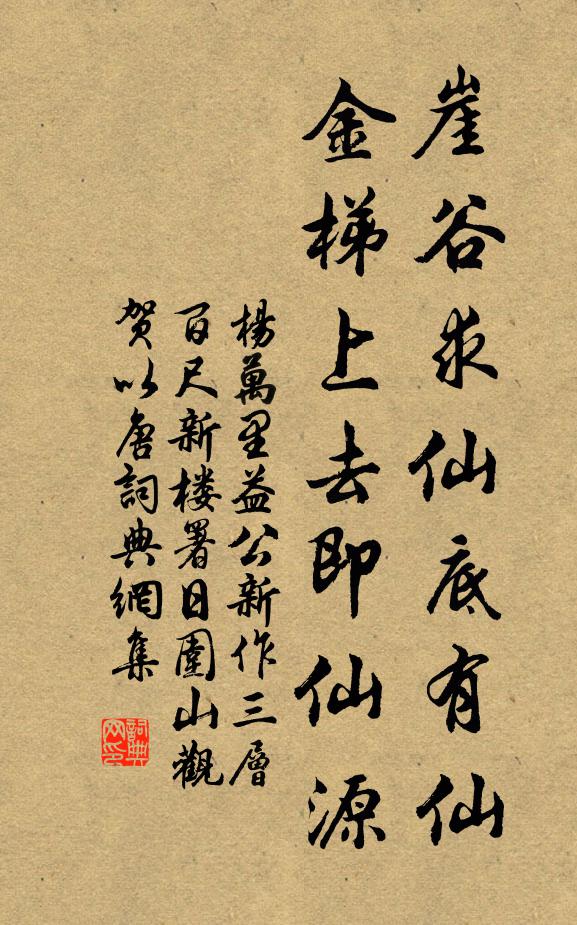 崖谷求仙底有仙
金梯上去即仙源
楊萬里益公新作三層
百尺新楼署日園山觀
賀以唐詞典網集
詞典
网印